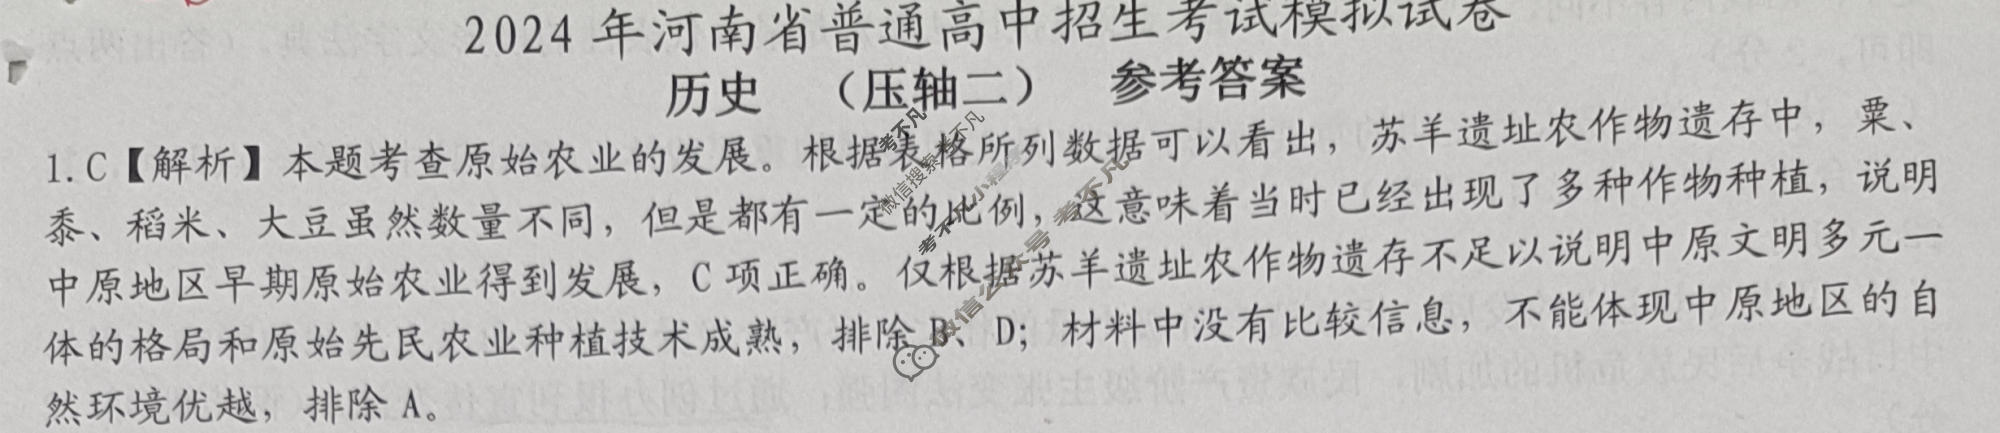 2024年河南省普通高中招生考试模拟试卷
历史 （压轴二） 参考答案
1. C【解析】本题考查原始农业的发展。根据表格所列数据可以看出，苏羊遗址农作物遗存中，粟、
黍、稻米、大豆虽然数量不同，但是都有一定的比例，这意味着当时已经出现了多种作物种植，说明
中原地区早期原始农业得到发展，C项正确。仅根据苏羊遗址农作物遗存不足以说明中原文明多元一
体的格局和原始先民农业种植技术成熟，排除B、D；材料中没有比较信息，不能体现中原地区的自
然环境优越，排除A。
考不凡
微信搜索考不凡
微信公众号 考不凡